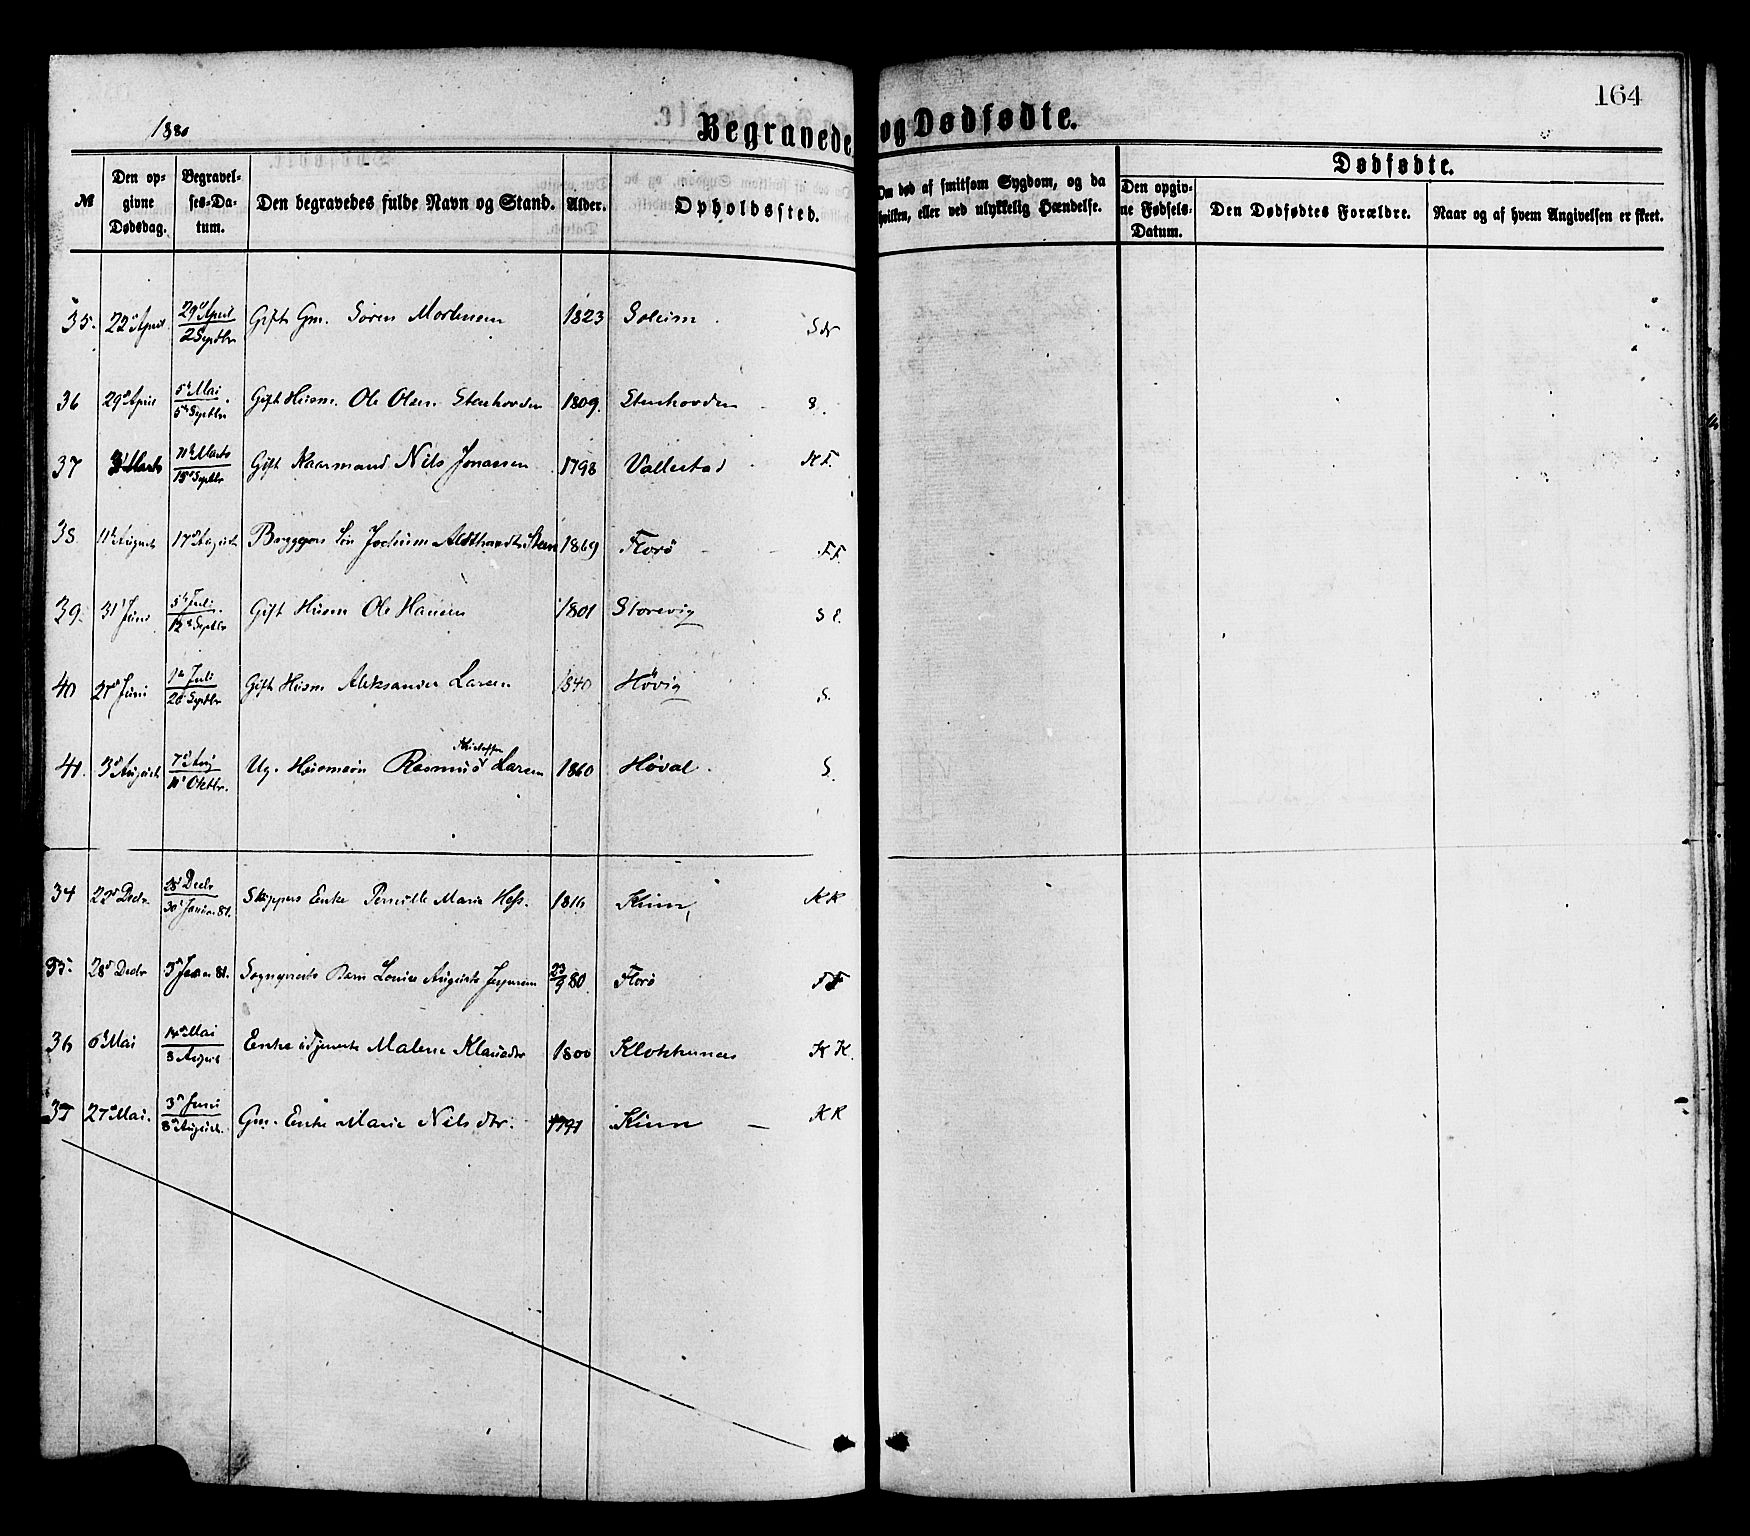 164
1880
Begravede og Dødfødte.
№
Den opgivne Dødsdag.
Begravelses-Datum.
Den begravedes fulde Navn og Stand.
Alder.
Opholdssted.
Om død af smitsom Sygdom, og da hvilken, eller ved ulykkelig Hændelse.
Dødfødte.
Den opgivne Fødsels-Datum.
Den Dødfødtes Forældre.
Naar og af hvem Angivelsen er skeet.
35. 22d April 29d April / 2 Septbr Gift Gm. Søren Mortensen 1823 Soleim
36 29d April 5t Mai / 5t Septbr Gift Husm. Ole Olsen Stenhovden 1809. Stenhovden S.
37 Marts 11t Marts / 15d Septbr Gift Kaarmand Nils Jonassen 1798 Vallestad
38 11t August 17d August Bryggers Søn Jochum 1869 Florø F.F.
39. 31d Juni 5t Juli / 12d Septbr Gift Husm Ole Hansen 1801 Storevig
40 Juni 1d Juli / Septbr Gift Husm Aleksander Larsen 1840 Høvig S.
41. 3d August 7d Aug / 11t Oktbr. Ug. Husmsøn Rasmus Kristoffer Larsen 1860 Høval. S.
34 Decbr. 28d Decbr / 30t Januar 81. Skippers Enke Pernille Marie Hess. 1816 Kinn KK
35. 28d Decbr 81. Sogneprests Barn Louise Auguste Jespersen 23/9 80 Florø FF
36 6t Mai 14d Mai / 8 August Enke Malene Klausdtr 1800 Klokkernes KK.
37 27d Mai. 3d Juni / 8d August. Gm. Enke Marie Nilsdtr. 1791 Kinn KK